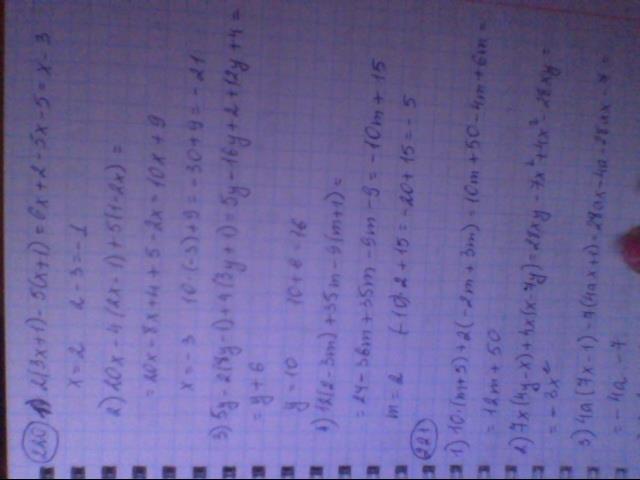 220 1) 2(3x+1)-5(x+1)=6x+2-5x-5=x-3
x=2 2-3=-1
2) 20x-4(2x-1)+5(1-2x)=
=20x-8x+4+5-2x=10x+9
x=-3 10·(-3)+9=-30+9=-21
3) 5y-2(8y-1)+4(3y+1)=5y-16y+2+12y+4=
=y+6
y=10 10+6=16
4) 12(2-3m)+35m-9(m+1)=
=24-36m+35m-9m-9=-10m+15
m=2 (-10)·2+15=-20+15=-5
221
1) 10·(m+5)+2(-2m+3m)=10m+50-4m+6m=
=12m+50
2) 7x(4y-x)+4x(x-7y)=28xy-7x²+4x²-28xy=
=-3x²
3) 4a(7x-1)-7(4ax+1)=28ax-4a-28ax-7=
=-4a-7